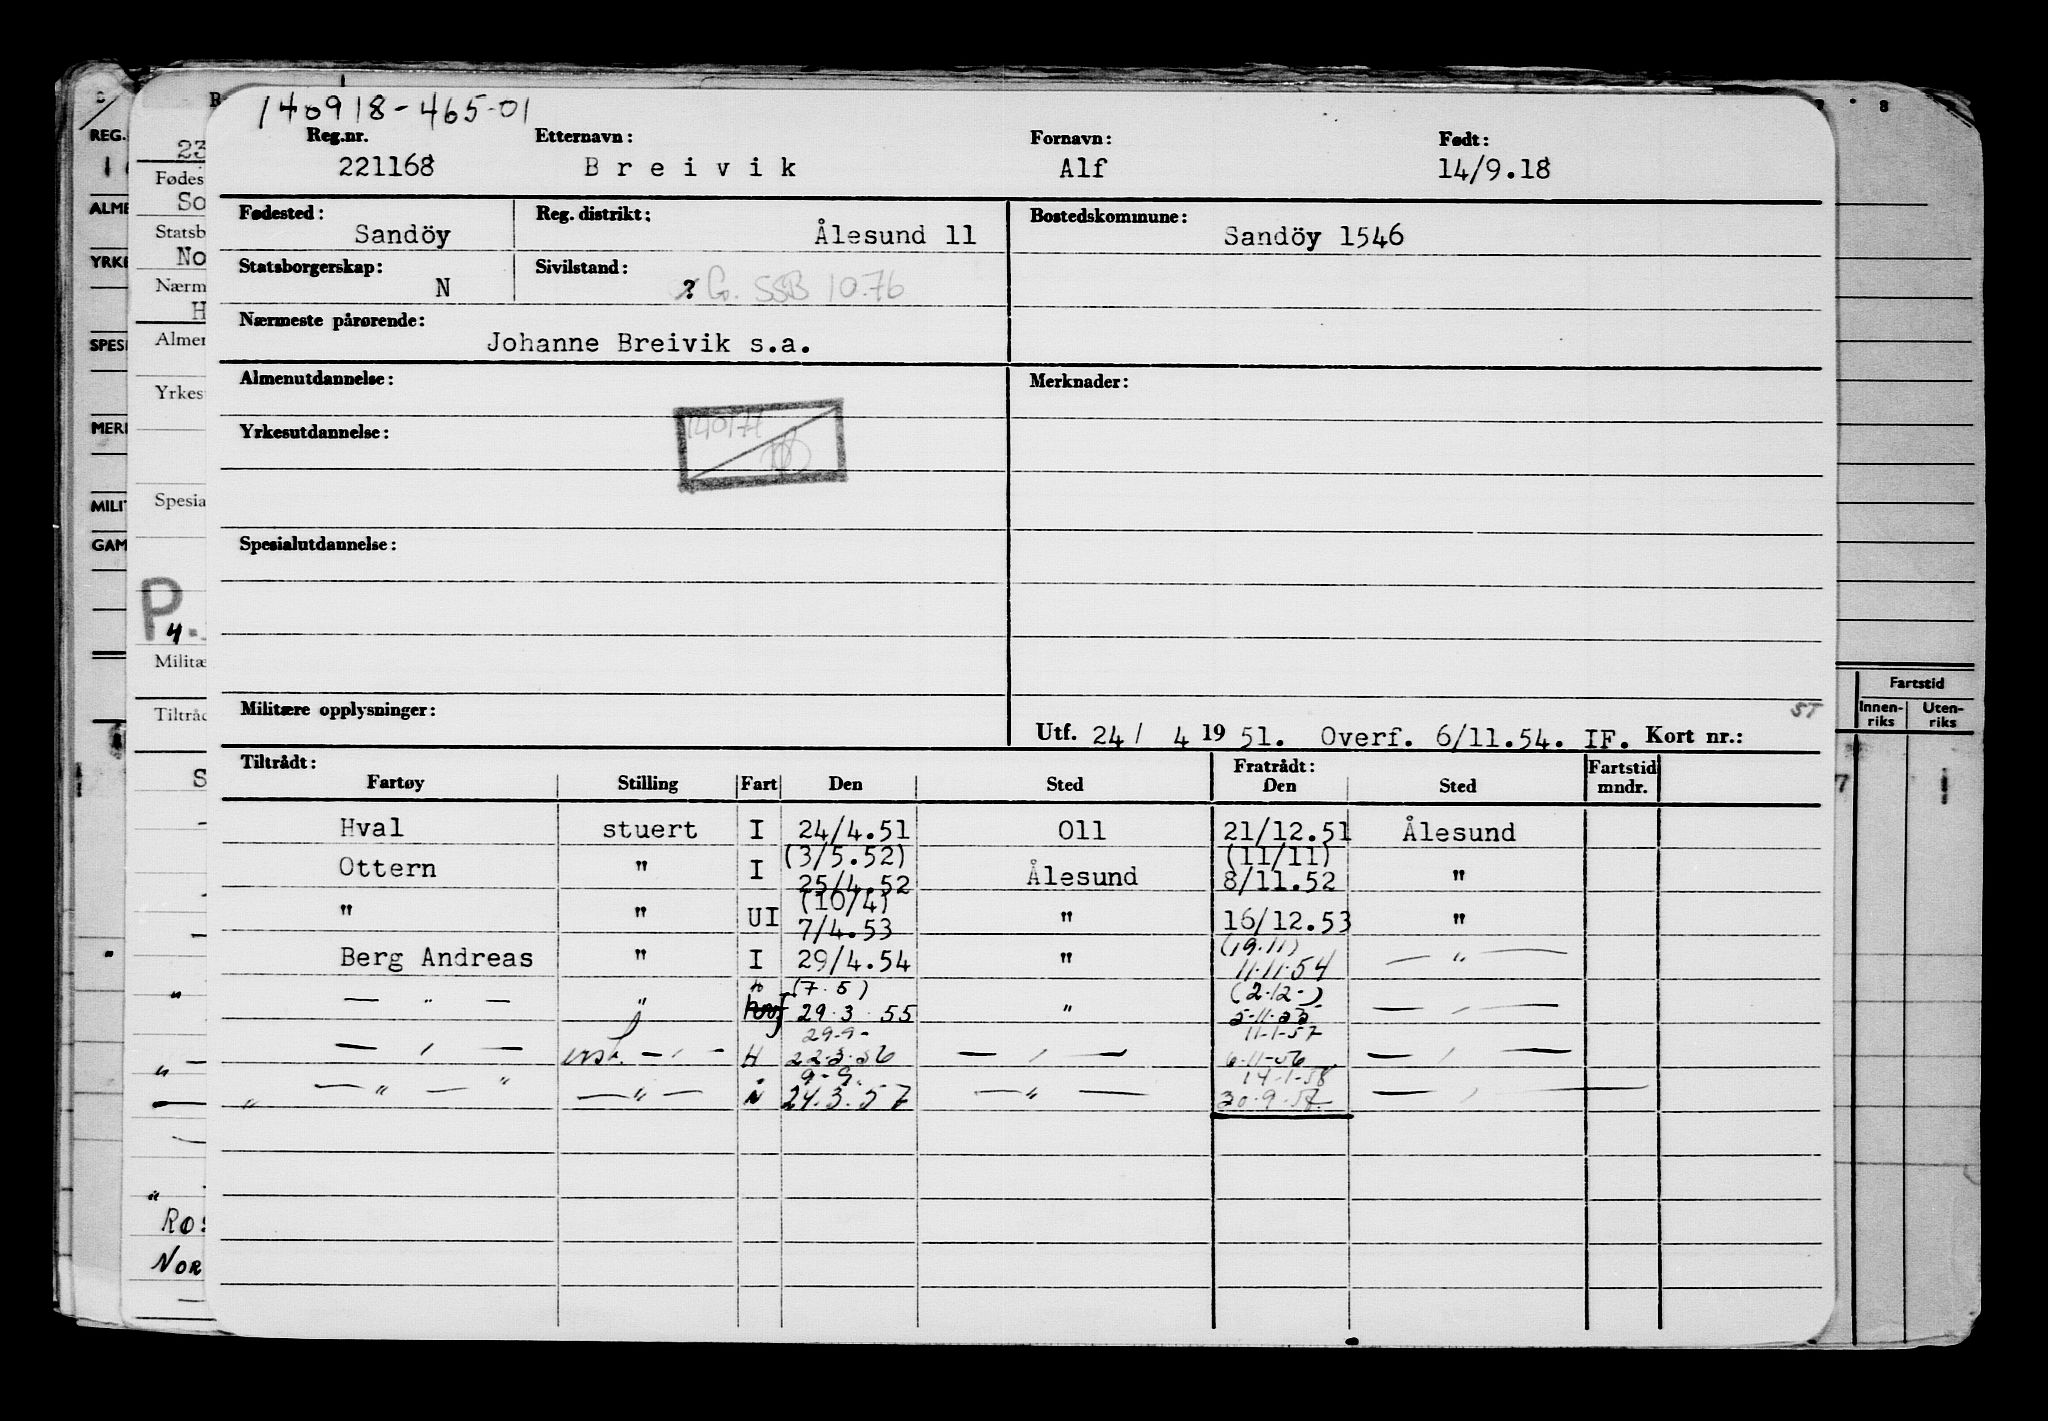 140918-465-01
Reg.nr. Etternavn: Fornavn: Født:
221168 Breivik Alf 14/9.18
Fødested: Reg. distrikt: Bostedskommune:
Sandöy Ålesund 11 Sandöy 1546
Statsborgerskap: Sivilstand:
N ? G. SSB 10.76
Nærmeste pårørende:
Johanne Breivik s.a.
Almenutdannelse: Merknader:
Yrkesutdannelse:
140177
Spesialutdannelse:
Militære opplysninger:
ST
Utf. 24/ 4 19 51. Overf. 6/11.54. IF. Kort nr.:
Tiltrådt: Fratrådt: Fartstid
Fartøy Stilling Fart Den Sted Den Sted mndr.
Hval stuert I 24/4.51 Oll 21/12.51 Ålesund
(3/5.52) (11/11)
Ottern " I 25/4.52 Ålesund 8/11.52 "
(10/4)
" " UI 7/4.53 " 16/12.53 "
(19.11)
Berg Andreas " I 29/4.54 " 11.11.54 — " —
H (7.5) (2.12-)
— " — " 29.3.55 " 5-11-55 — " —
29.9- 11-1-57
— " — — " — H 22.3.56 — " — 6-11-56 — " —
9-9. 14-1-58
— " — " — " — N 24.3.57 — " — 30.9.57 — " —
REG.
ALME
YRKE
SPESI
MERK
MILIT
GAM
23
Fødes
So
Statsb
No
Nærm
H
Almen
Yrkes
Spesia
P
4.
Militæ
Tiltråd
S
RØS
NOR
8
Fartstid
Innen-riks Uten-riks
7 1